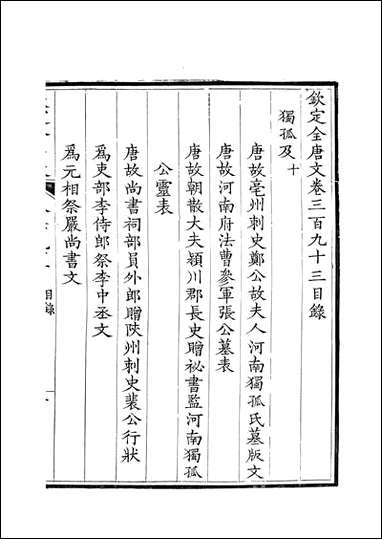 欽定全唐文卷三百九十三目錄
獨孤及十
唐故亳州刺史鄭公故夫人河南獨孤氏墓版文
唐故河南府法曹參軍張公墓表
唐故朝散大夫潁川郡長史贈祕書監河南獨孤
公靈表
唐故尚書祠部員外郎贈陝州刺史裴公行狀
為吏部李侍郎祭李中丞文
為元相祭嚴尚書文
目錄